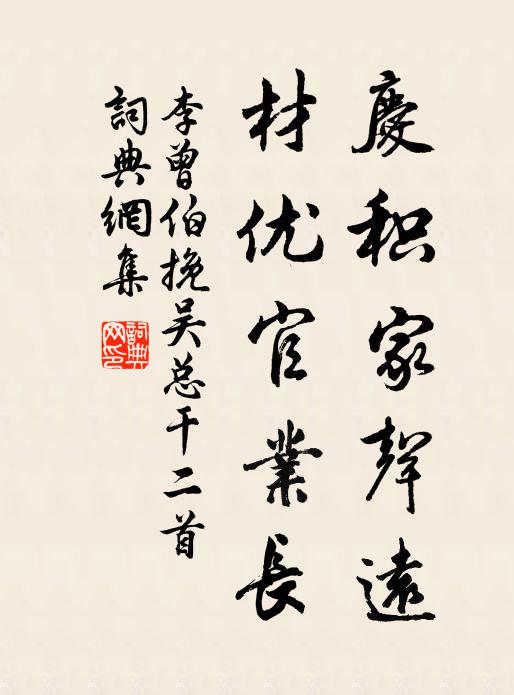 慶积家聲遠
材优官業長
李曾伯挽吴总干二首
詞典網集
詞典网印